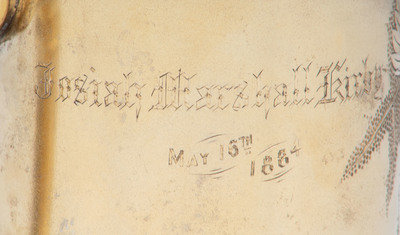 Josiah Marshall Kirby
May 15TH
1884